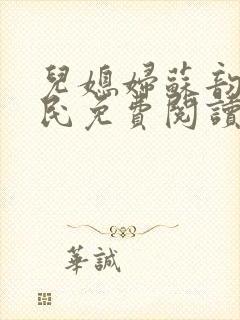 兒媳婦蘇韵
民免費閱讀
華誠